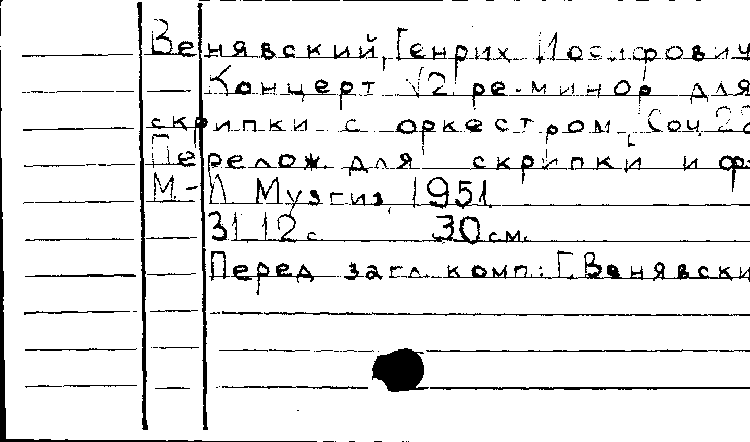 Венявский, Генрих Иосифович
Концерт №2 ре-минор для
скрипки с оркестром, Соч. 22
Перелож. для скрипки и ф
М.-Л Музгиз, 1951
31, 12 с 30 см.
Перед загл. комп: Г. Венявски